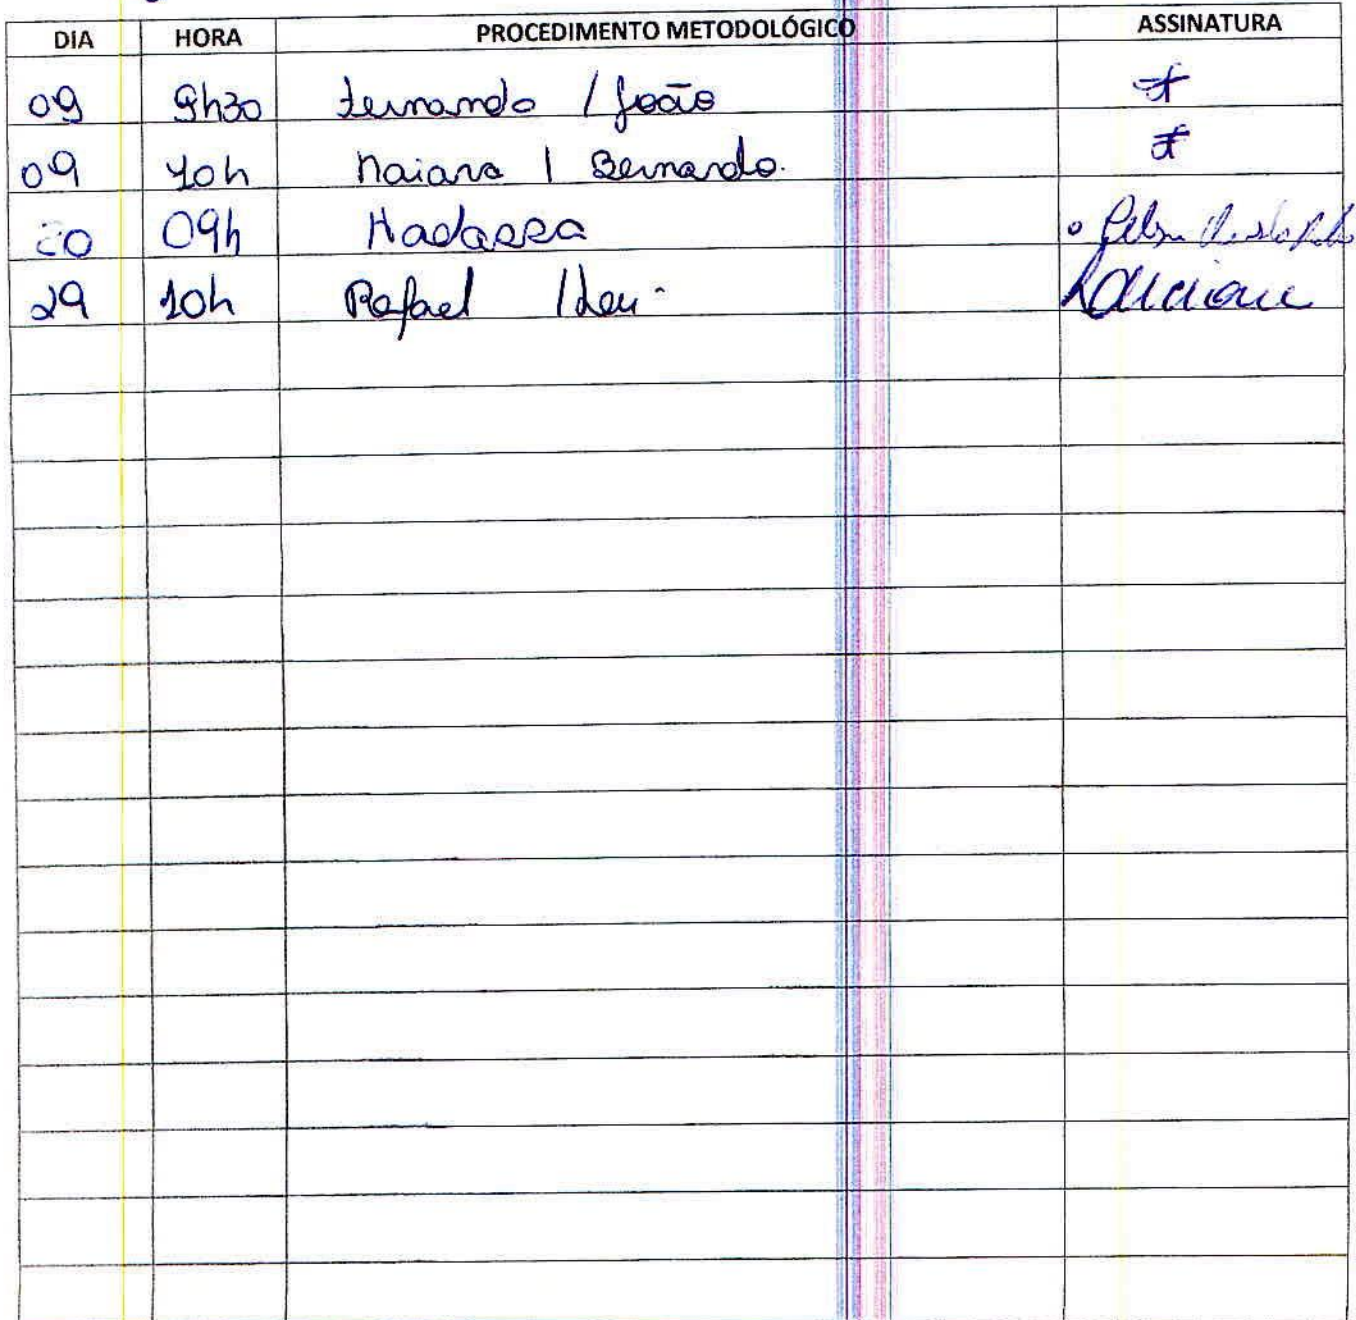 DIA HORA PROCEDIMENTO METODOLÓGICO ASSINATURA
09 9h30 Fernando / João F
09 10h Naiara / Bernardo. F
20 09h Hadassa
29 10h Rafael / Levi Luciane